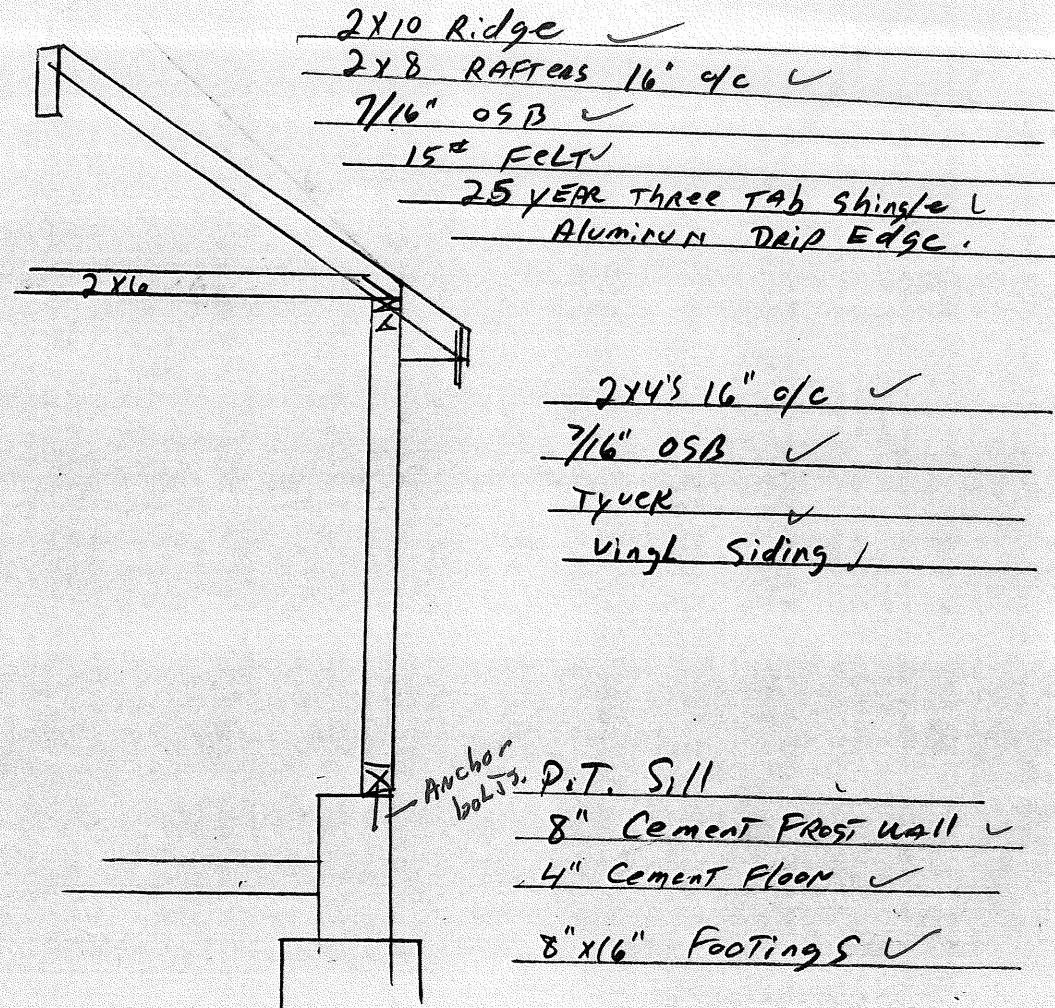 2X10 Ridge ✓
2X8 RAFTERS 16" o/c ✓
7/16" OSB ✓
15# FeLT ✓
25 YEAR Three TAb Shingle
Aluminum Drip Edge.
2X6
2X4's 16" o/c ✓
7/16" OSB ✓
Tyvek ✓
Vinyl Siding ✓
Anchor
boLTs.
P.T. Sill
8" Cement FROST WAll ✓
4" Cement Floor ✓
8"X16" Footings ✓